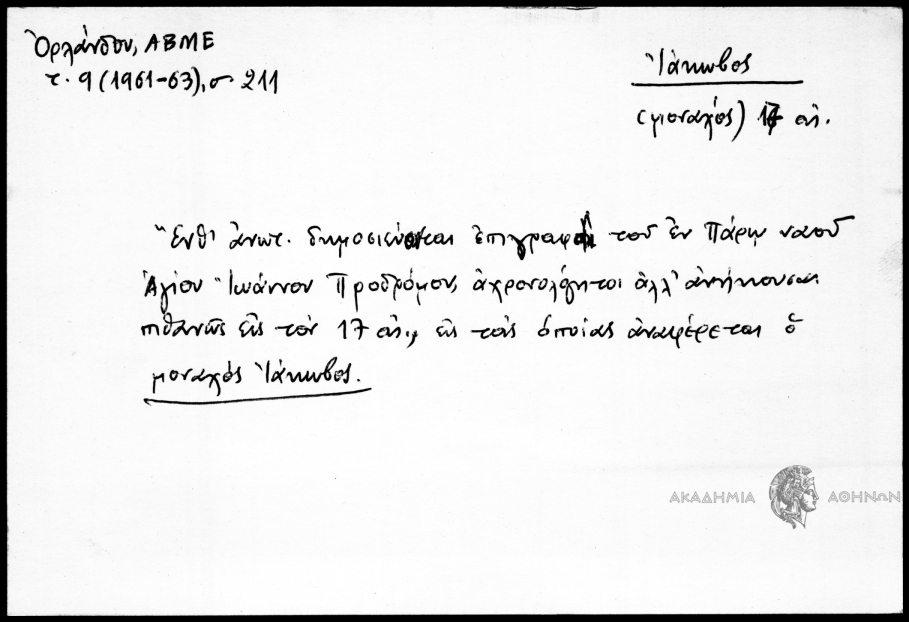 Ὀρλάνδου, ΑΒΜΕ
τ. 9 (1961-63), σ. 211
Ἰάκωβος
(μοναχός) 17 αἰ.
Ἔνθ' ἀνωτ. δημοσιεύονται ἐπιγραφαὶ τοῦ ἐν Πάρῳ ναοῦ
Ἁγίου Ἰωάννου Προδρόμου, ἀχρονολόγητοι ἀλλ' ἀνήκουσαι
πιθανῶς εἰς τὸν 17 αἰ., εἰς τὰς ὁποίας ἀναφέρεται ὁ
μοναχός Ἰάκωβος.
ΑΚΑΔΗΜΙΑ ΑΘΗΝΩΝ